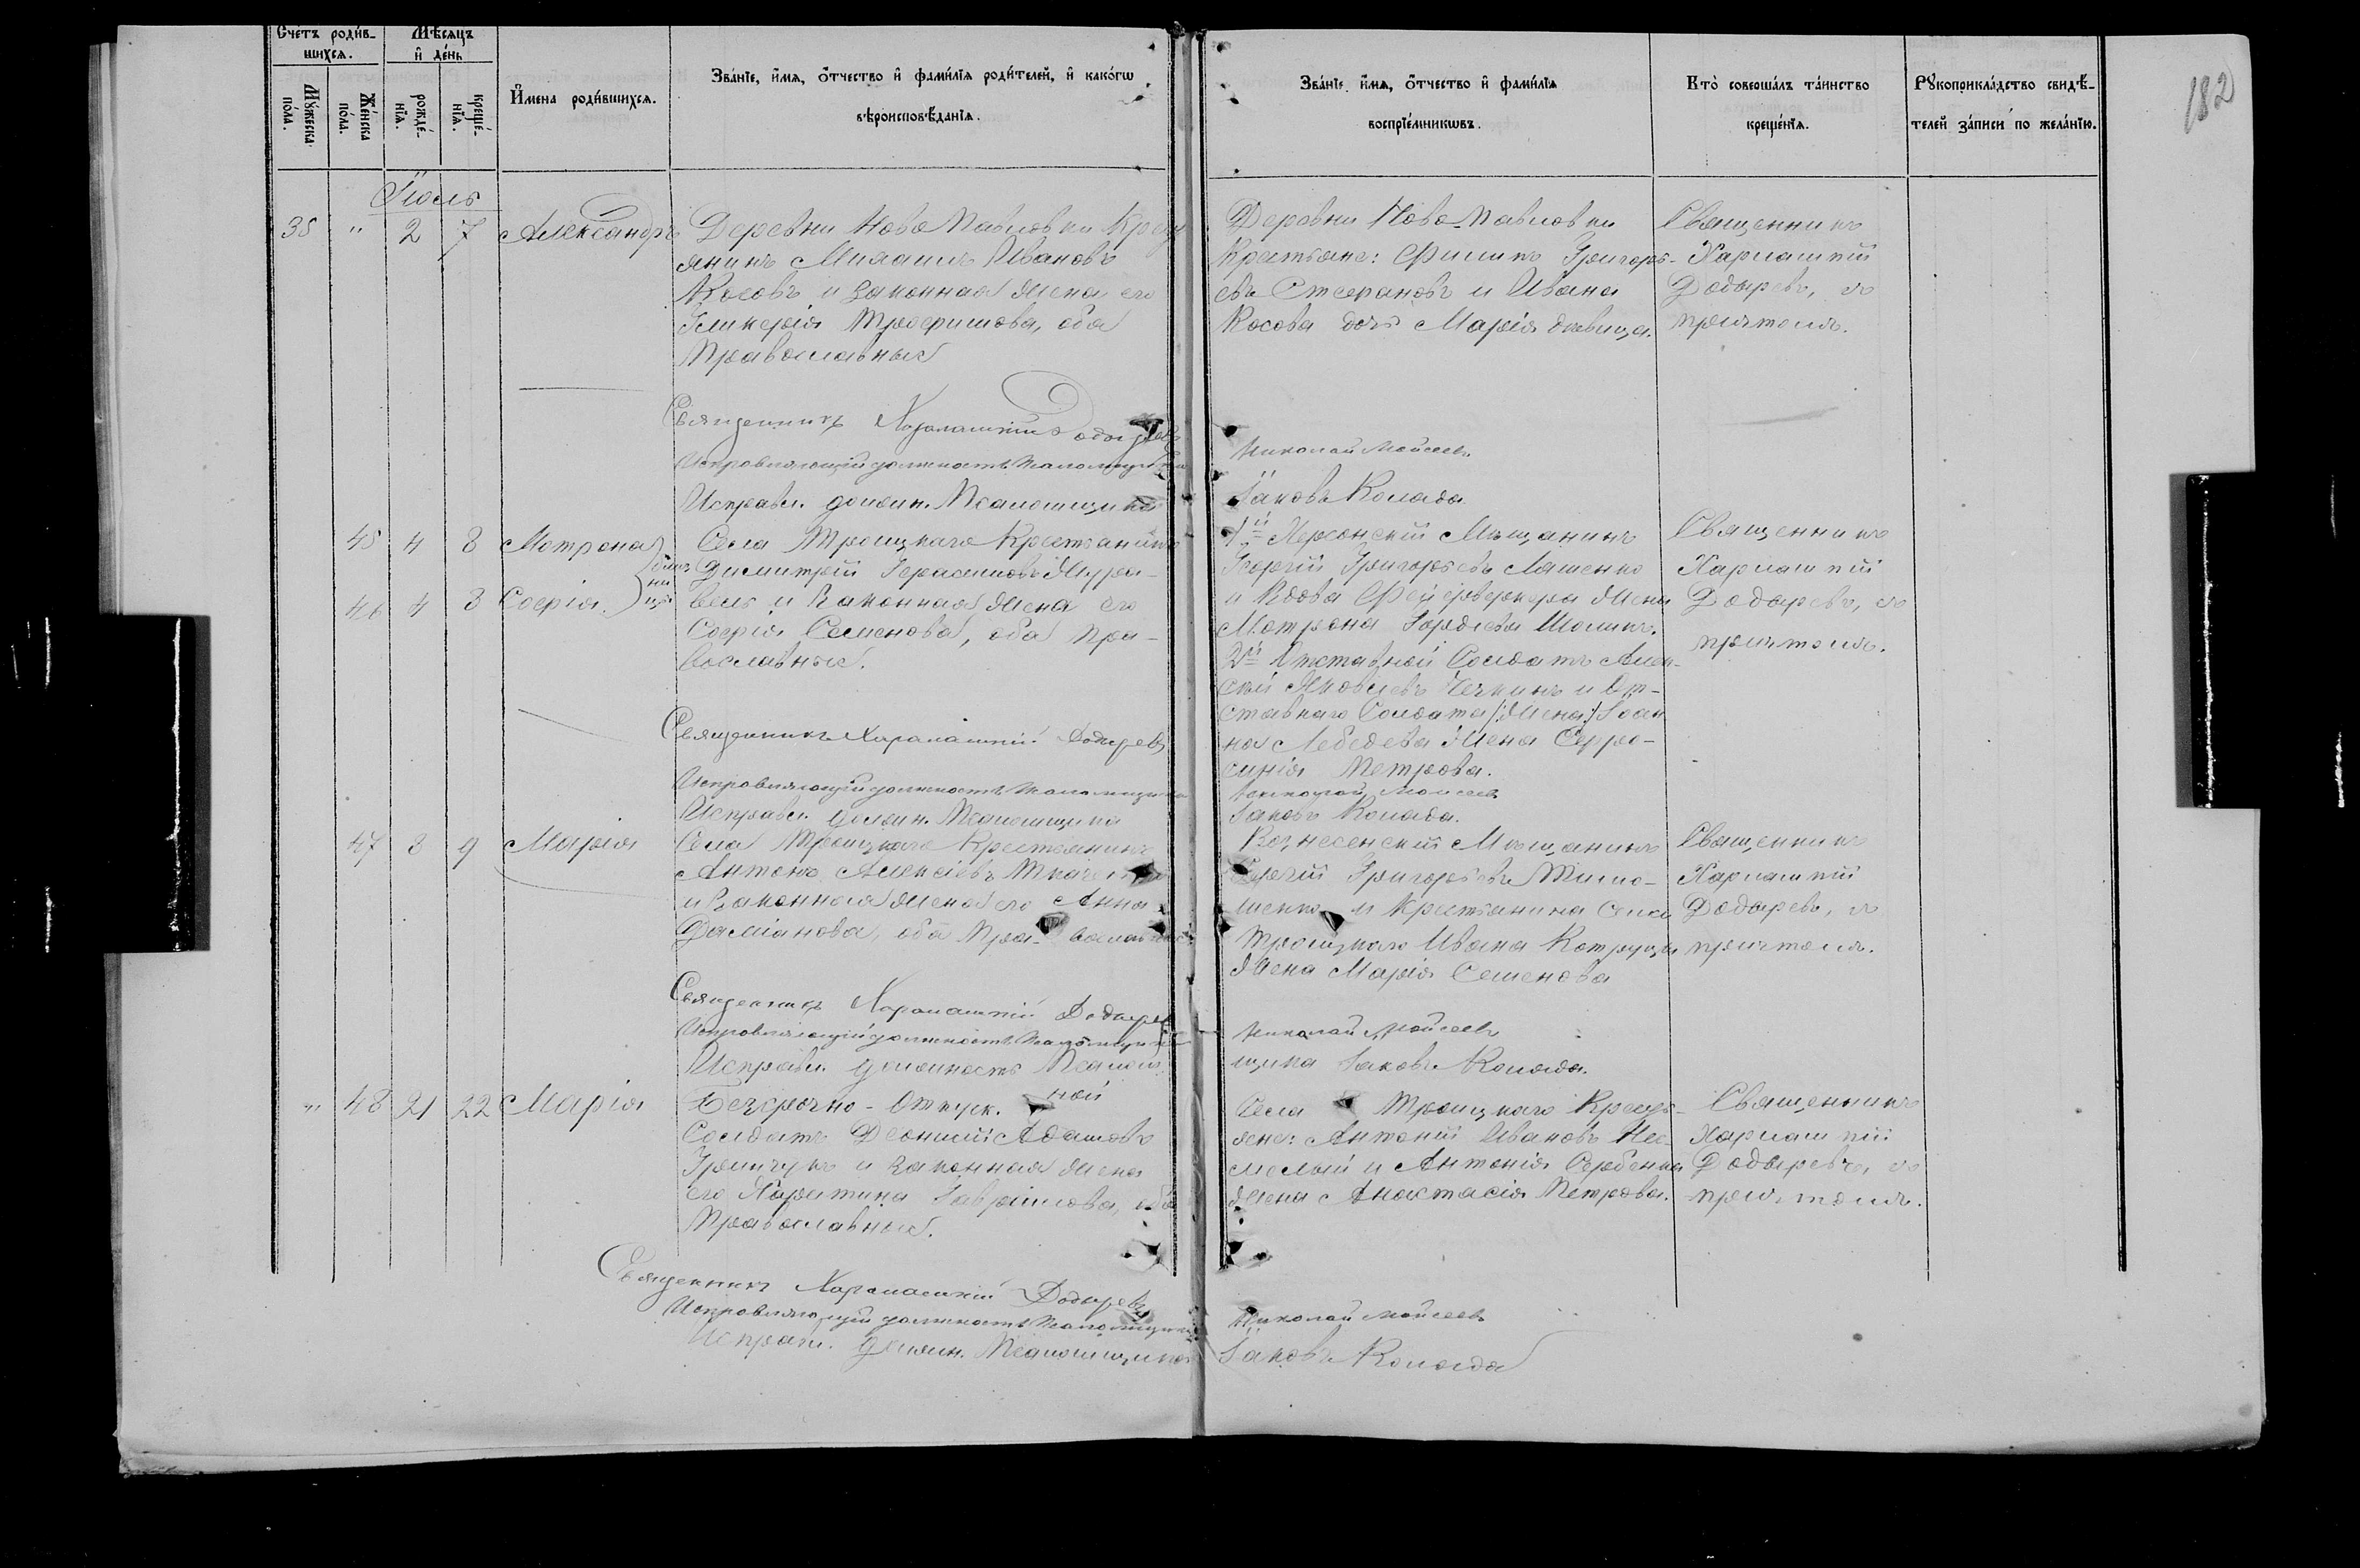 Счетъ родив-
шихся.
Мѣсяцъ
и день
Мужеска
пола.
Женска
пола.
рожде-
нія.
креще-
нія.
Имена родившихся.
Званіе, имя, отчество и фамилія родителей, и какогω
вѣроисповѣданія.
Званіе, имя, отчество и фамилія
воспріемникωвъ.
Кто совершалъ таинство
крещенія.
Рукоприкладство свидѣ-
телей записи по желанію.
182
Іюль
35 " 2 7 Александръ
Деревни Ново Павловки Крест
янинъ Михаилъ Ивановъ
Косовъ и законная жена его
Гликерія Трофимова, оба
Православные
Деревни Ново-Павловки
Крестьяне: Филипъ Григорь-
евъ Стефановъ и Ивана
Косова дочь Марія дѣвица.
Священникъ
Харлампій
Додыревъ, съ
причтомъ.
Священникъ Харлампій Додыревъ
Исправляющій должность Псаломщика
Николай Мойсеевъ
Исправл. должн. Псаломщика
Іаковъ Колада
45 4 8 Мотрона
46 4 8 Софія
близ
ни
цы
Села Троицкаго Крестьянинъ
Димитрій Герасимовъ Жура-
вель и законная жена его
Софія Семенова, оба пра-
вославные.
1й Херсонскій Мѣщанинъ
Георгій Григорьевъ Ляшенко
и Вдова Фейерверкера жена
Мотрона Гордіева
2й Отставной Солдатъ Алек-
сей Яковлевъ и От-
ставнаго Солдата /:жена:/ Іоан
на Лебедева жена Ефро-
синія Петрова.
Священникъ
Харлампій
Додыревъ, съ
причтомъ.
Священникъ Харлампій Додыревъ
Исправляющій должность Псаломщика
Николай Мойсеевъ
Исправл. должн. Псаломщика
Іаковъ Колада.
47 8 9 Марія
Села Троицкаго Крестьянинъ
Антонъ Алексіевъ
и законная жена его Анна
Даміанова, оба Православные
Вознесенскій Мѣщанинъ
Сергій Григорьевъ Тимо-
шенко и Крестьянина Села
Троицкаго Ивана
жена Марія Семенова
Священникъ
Харлампій
Додыревъ, съ
причтомъ.
Священникъ Харлампій Додыревъ
Исправляющій должность Псаломщика
Николай Мойсеевъ
Исправл. должность Псалом
щика Іаковъ Колада.
" 48 21 22 Марія
Безсрочно-Отпуск. ной
Солдатъ Деонисій Адамовъ
и законная жена
его Харитина Гавріилова, оба
Православные.
Села Троицкаго Кресть-
яне: Антоній Ивановъ Нес-
мелый и Антонія
жена Анастасія Петрова.
Священникъ
Харлампій
Додыревъ, съ
причтомъ.
Священникъ Харлампій Додыревъ
Исправляющій должность Псаломщика
Николай Мойсеевъ
Исправл. должн. Псаломщика
Іаковъ Колада